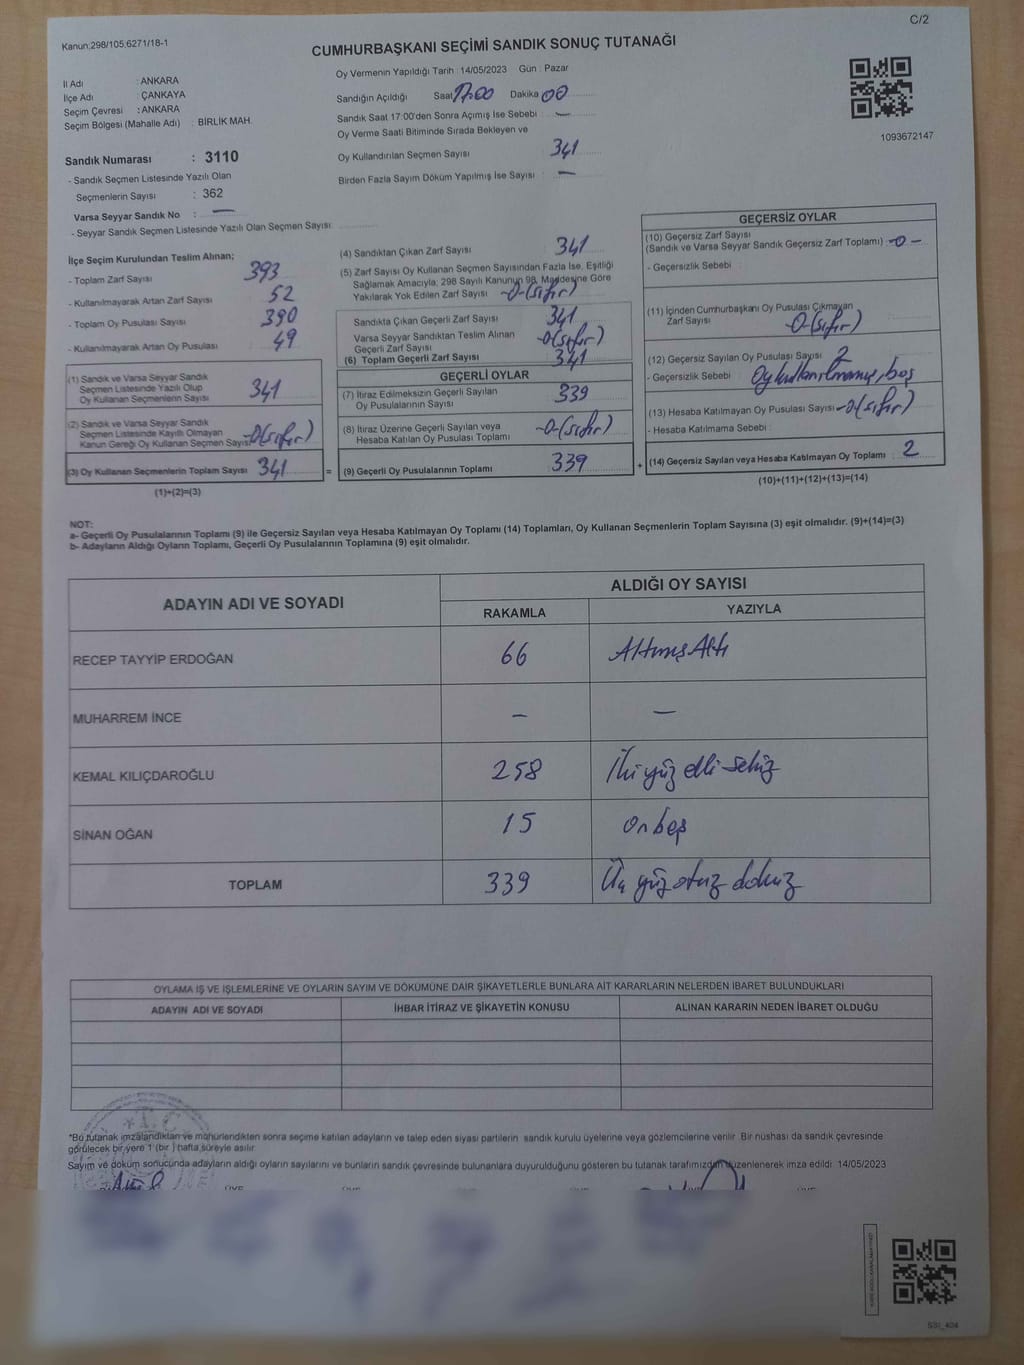 C/2
Kanun;298/105,6271/18-1
CUMHURBAŞKANI SEÇİMİ SANDIK SONUÇ TUTANAĞI
İl Adı : ANKARA
İlçe Adı : ÇANKAYA
Seçim Çevresi : ANKARA
Seçim Bölgesi (Mahalle Adı) : BİRLİK MAH.
Sandık Numarası : 3110
- Sandık Seçmen Listesinde Yazılı Olan
Seçmenlerin Sayısı : 362
Varsa Seyyar Sandık No : —
- Seyyar Sandık Seçmen Listesinde Yazılı Olan Seçmen Sayısı:
Oy Vermenin Yapıldığı Tarih : 14/05/2023 Gün : Pazar
Sandığın Açıldığı Saat 17:00 Dakika 00
Sandık Saat 17:00'den Sonra Açımış İse Sebebi : —
Oy Verme Saati Bitiminde Sırada Bekleyen ve
Oy Kullandırılan Seçmen Sayısı 341
Birden Fazla Sayım Döküm Yapılmış İse Sayısı : —
1093672147
İlçe Seçim Kurulundan Teslim Alınan;
- Toplam Zarf Sayısı 393
- Kullanılmayarak Artan Zarf Sayısı 52
- Toplam Oy Pusulası Sayısı 390
- Kullanılmayarak Artan Oy Pusulası 49
(1) Sandık ve Varsa Seyyar Sandık
Seçmen Listesinde Yazılı Olup
Oy Kullanan Seçmenlerin Sayısı 341
(2) Sandık ve Varsa Seyyar Sandık
Seçmen Listesinde Kayıtlı Olmayan
Kanun Gereği Oy Kullanan Seçmen Sayısı -0(sıfır)
(3) Oy Kullanan Seçmenlerin Toplam Sayısı 341
(1)+(2)=(3)
(4) Sandıktan Çıkan Zarf Sayısı 341
(5) Zarf Sayısı Oy Kullanan Seçmen Sayısından Fazla İse, Eşitliği
Sağlamak Amacıyla; 298 Sayılı Kanunun 98. Maddesine Göre
Yakılarak Yok Edilen Zarf Sayısı -0-(sıfır)
Sandıkta Çıkan Geçerli Zarf Sayısı 341
Varsa Seyyar Sandıktan Teslim Alınan
Geçerli Zarf Sayısı -0(sıfır)
(6) Toplam Geçerli Zarf Sayısı 341
GEÇERLİ OYLAR
(7) İtiraz Edilmeksizin Geçerli Sayılan
Oy Pusulalarının Sayısı 339
(8) İtiraz Üzerine Geçerli Sayılan veya
Hesaba Katılan Oy Pusulası Toplamı -0-(sıfır)
= (9) Geçerli Oy Pusulalarının Toplamı 339
GEÇERSİZ OYLAR
(10) Geçersiz Zarf Sayısı
(Sandık ve Varsa Seyyar Sandık Geçersiz Zarf Toplamı) -0-
- Geçersizlik Sebebi :
(11) İçinden Cumhurbaşkanı Oy Pusulası Çıkmayan
Zarf Sayısı -0-(sıfır)
(12) Geçersiz Sayılan Oy Pusulası Sayısı 2
- Geçersizlik Sebebi : Oy kullanılmamış, boş
(13) Hesaba Katılmayan Oy Pusulası Sayısı -0(sıfır)
- Hesaba Katılmama Sebebi :
+ (14) Geçersiz Sayılan veya Hesaba Katılmayan Oy Toplamı 2
(10)+(11)+(12)+(13)=(14)
NOT:
a- Geçerli Oy Pusulalarının Toplamı (9) ile Geçersiz Sayılan veya Hesaba Katılmayan Oy Toplamı (14) Toplamları, Oy Kullanan Seçmenlerin Toplam Sayısına (3) eşit olmalıdır. (9)+(14)=(3)
b- Adayların Aldığı Oyların Toplamı, Geçerli Oy Pusulalarının Toplamına (9) eşit olmalıdır.
ADAYIN ADI VE SOYADI ALDIĞI OY SAYISI
RAKAMLA YAZIYLA
RECEP TAYYİP ERDOĞAN 66 Altmış Altı
MUHARREM İNCE — —
KEMAL KILIÇDAROĞLU 258 İki yüz elli sekiz
SİNAN OĞAN 15 On beş
TOPLAM 339 Üç yüz otuz dokuz
OYLAMA İŞ VE İŞLEMLERİNE VE OYLARIN SAYIM VE DÖKÜMÜNE DAİR ŞİKAYETLERLE BUNLARA AİT KARARLARIN NELERDEN İBARET BULUNDUKLARI
ADAYIN ADI VE SOYADI İHBAR İTİRAZ VE ŞİKAYETİN KONUSU ALINAN KARARIN NEDEN İBARET OLDUĞU
T.C.
*Bu tutanak imzalandıktan ve mühürlendikten sonra seçime katılan adayların ve talep eden siyasi partilerin sandık kurulu üyelerine veya gözlemcilerine verilir. Bir nüshası da sandık çevresinde
görülecek bir yere 1 (bir ) hafta süreyle asılır.
Sayım ve döküm sonucunda adayların aldığı oyların sayılarını ve bunların sandık çevresinde bulunanlara duyurulduğunu gösteren bu tutanak tarafımızdan düzenlenerek imza edildi. 14/05/2023